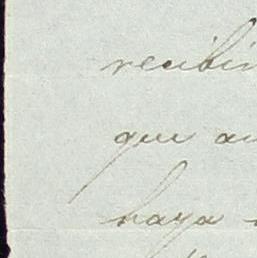 recibir
que au
haya